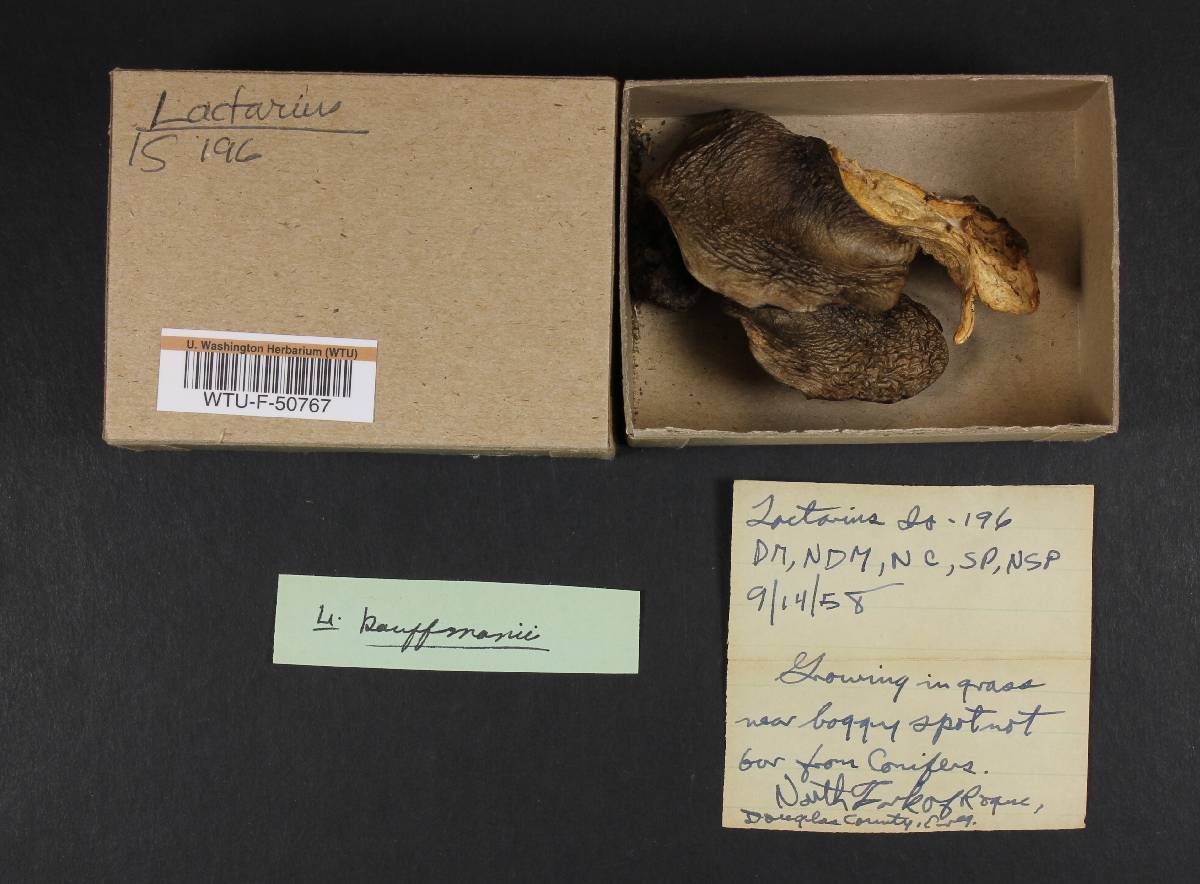 Lactarius
IS 196
U. Washington Herbarium (WTU)
WTU-F-50767
L. kauffmanii
Lactarius Is - 196
DM, NDM, NC, SP, NSP
9/14/58
Growing in grass
near boggy spot not
far from Conifers.
North Fork of Rogue,
Douglas County,